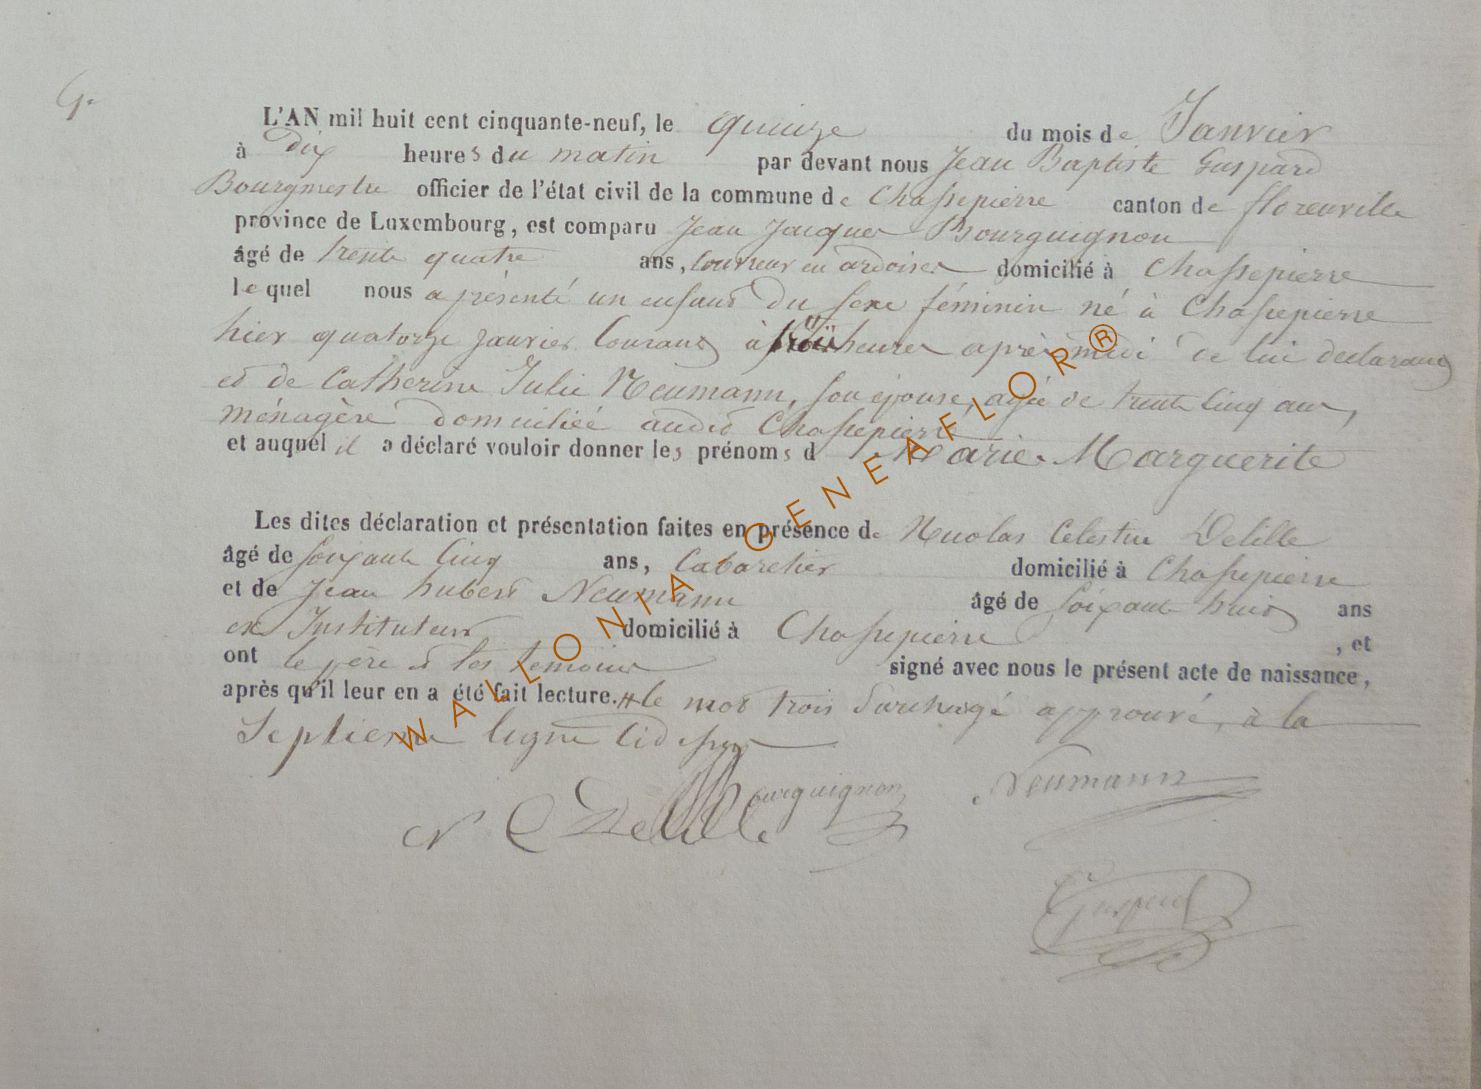 G.
L'AN mil huit cent cinquante-neuf, le quinze du mois de Janvier
à dix heures du matin par devant nous Jean Baptiste Gaspard
Bourgmestre officier de l'état civil de la commune de Chassepierre canton de florenville
province de Luxembourg, est comparu Jean Jacques Bourguignon
âgé de trente quatre ans, Couvreur en ardoises domicilié à Chassepierre
lequel nous a présenté un enfant du sexe féminin né à Chassepierre
hier quatorze janvier Courant à trois heures après midi de lui declarant
et de Catherine Julie Neumann, son épouse, agée de trente Cinq ans,
ménagère domiciliée audit Chassepierre
et auquel il a déclaré vouloir donner les prénoms d Marie Marguerite
Les dites déclaration et présentation faites en présence de Nicolas Celestin Delille
âgé de soixante Cinq ans, Cabaretier domicilié à Chassepierre
et de Jean hubert Neumann âgé de soixante huit ans
ex Instituteur domicilié à Chassepierre , et
ont le père et les temoins signé avec nous le présent acte de naissance,
après qu'il leur en a été fait lecture. # le mot trois surchargé approuvé, à la
Septieme ligne
N C Delille Bourguignon Neumann
Gaspard
WALLONIA GENEAFLOR®